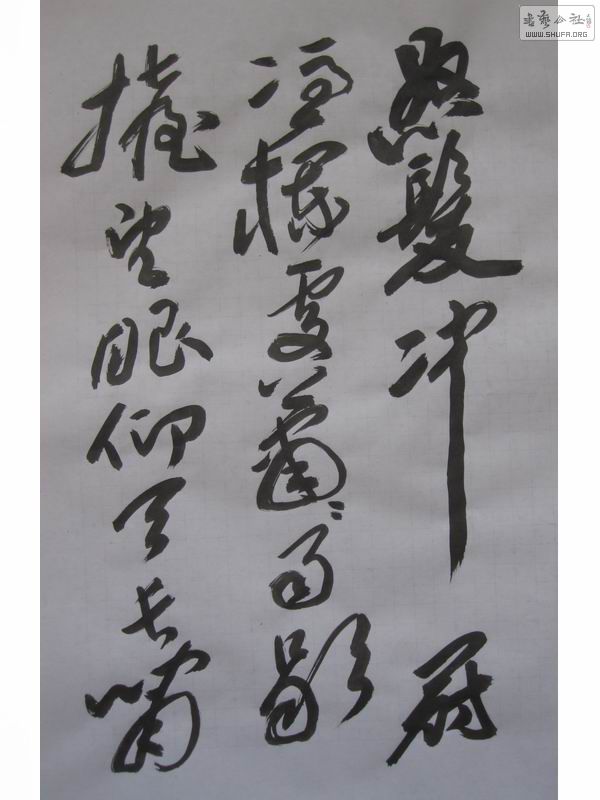 怒髮冲冠
凭欄處蕭〻雨歇
擡望眼仰天長嘯
書藝公社
WWW.SHUFA.ORG